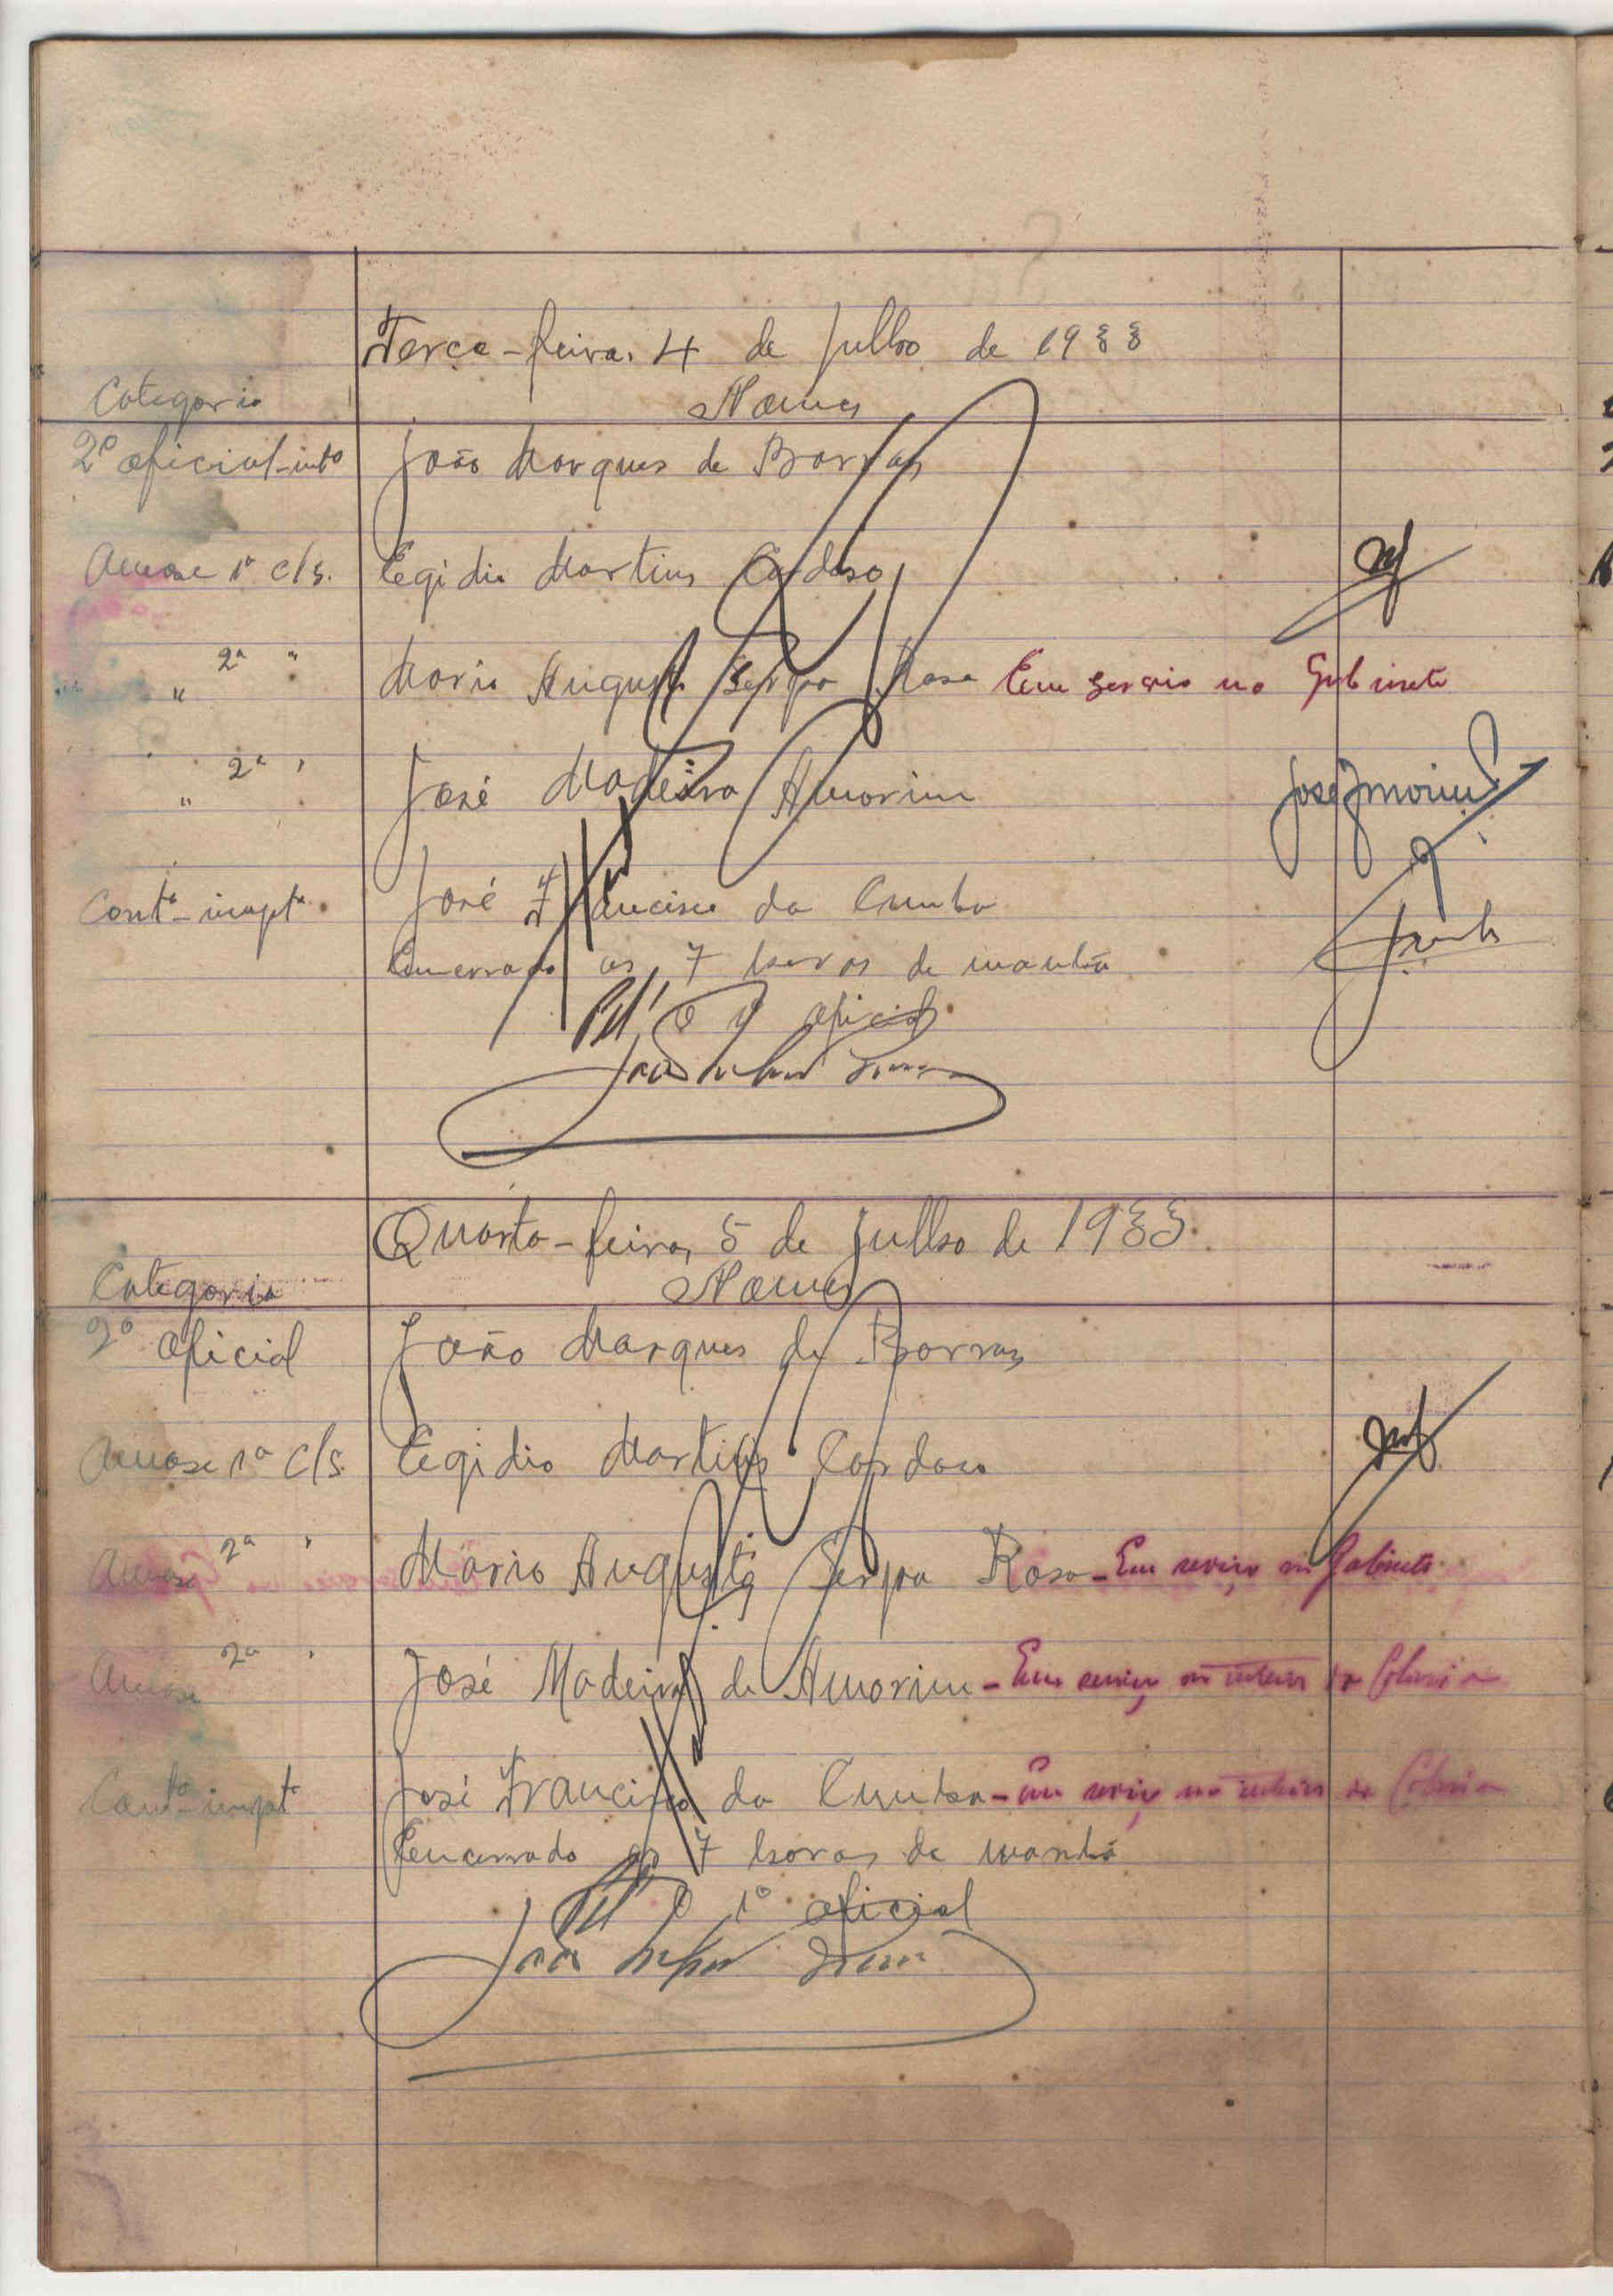 Terça-feira, 4 de Julho de 1933
Categoria Nomes
2º oficial-intº João Marques de Barros
Amase 1ª cls. Egidio Martins Cardoso
" 2ª " Mario Augusto Serpa Rosa Em serviço no Gabinete
" 2ª " José Madeira Amorim José Amorim
Contº-impt José Francisco da Cunha
Encerrado as 7 horas da manhã
O 1º oficial
João
Quarta-feira, 5 de Julho de 1933.
Categoria Nomes
2º oficial João Marques de Barros
Amase 1ª cls. Egidio Martins Cardoso
Amase 2ª " Mario Augusto Serpa Rosa - Em serviço no Gabinete
Amase 2ª " José Madeira de Amorim - Em serviço no interior da Colonia
Contº-impt José Francisco da Cunha - Em serviço no interior da Colonia
Encerrado as 7 horas da manhã
O 1º oficial
João